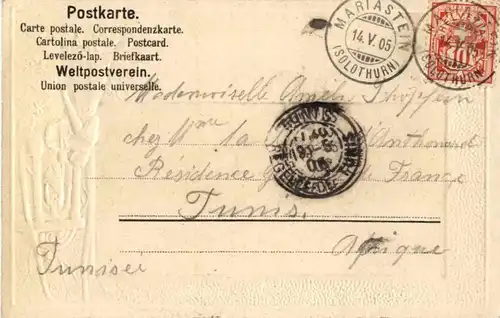 Postkarte.
Carte postale. Correspondenzkarte.
Cartolina postale. Postcard.
Levelező-lap. Briefkaart.
Weltpostverein.
Union postale universelle.
MARIASTEIN
14.V.05
(SOLOTHURN)
HELVETIA
10
(SOLOTHURN)
Mademoiselle
chez Mme la
Résidence de France
TUNIS
RÉGENCE DE TUNIS
Tunis.
Afrique
Tunisei